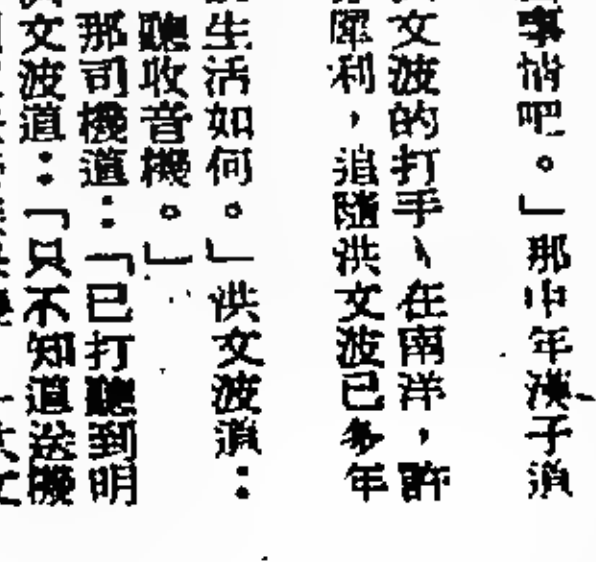 事情吧。」那中年漢子道
文波的打手、在南洋，許
犀利，追隨洪文波已多年
生活如何。」洪文波道：
聽收音機。」
那司機道：「已打聽到明
文波道：「只不知道送機